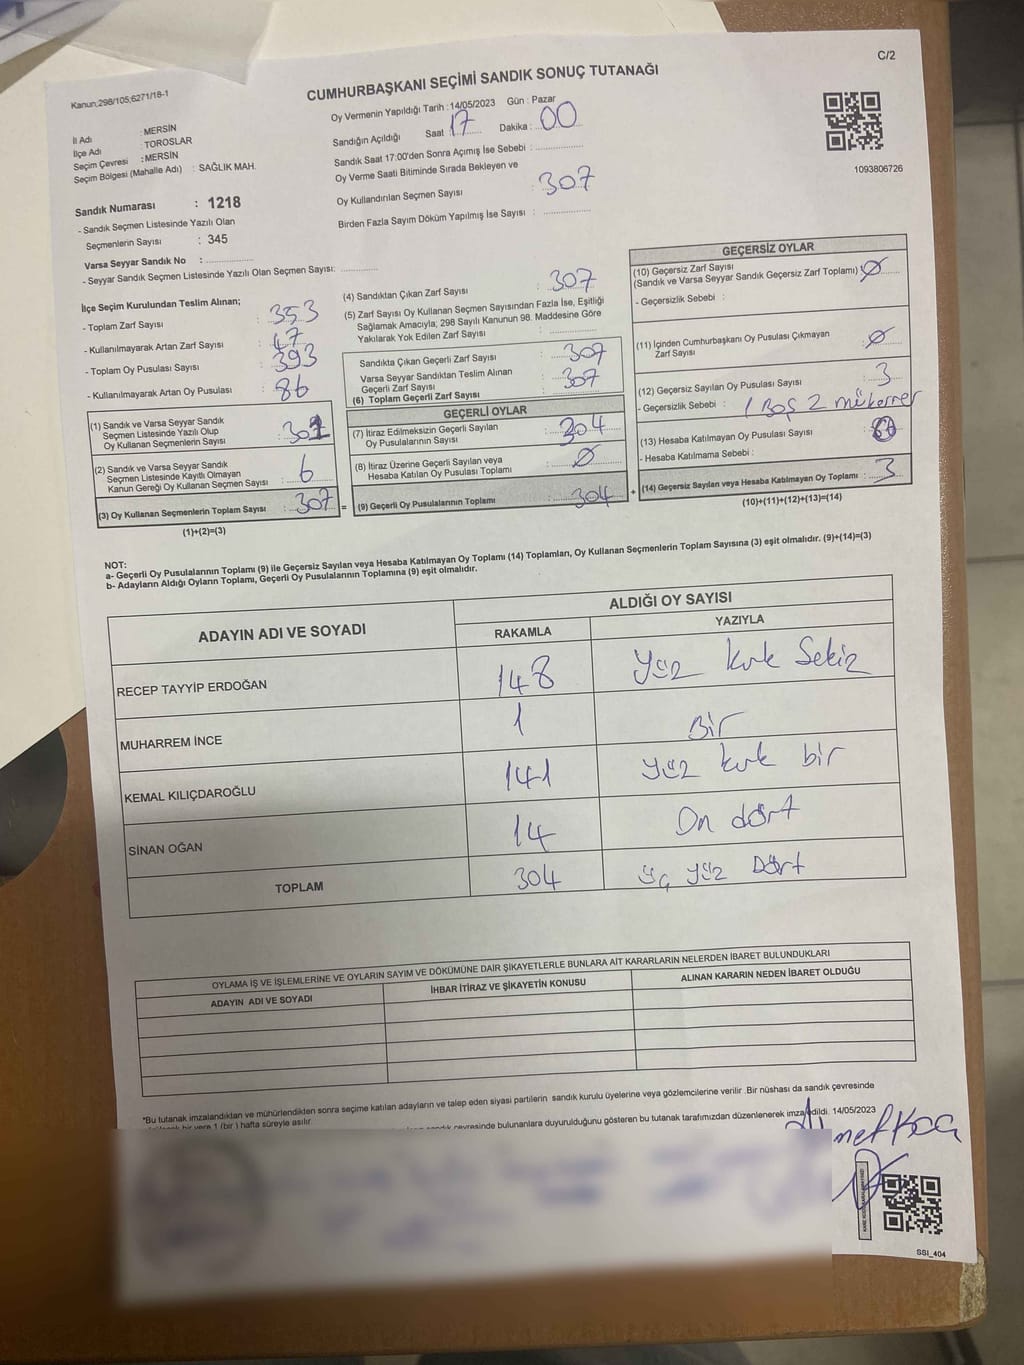 C/2
CUMHURBAŞKANI SEÇİMİ SANDIK SONUÇ TUTANAĞI
Kanun;298/105;6271/18-1
Oy Vermenin Yapıldığı Tarih : 14/05/2023 Gün : Pazar
İl Adı : MERSİN
İlçe Adı : TOROSLAR
Seçim Çevresi : MERSİN
Seçim Bölgesi (Mahalle Adı) : SAĞLIK MAH.
Sandığın Açıldığı Saat 17 Dakika : 00
Sandık Saat 17:00'den Sonra Açımış İse Sebebi :
Oy Verme Saati Bitiminde Sırada Bekleyen ve
Oy Kullandırılan Seçmen Sayısı : 307
Birden Fazla Sayım Döküm Yapılmış İse Sayısı :
1093806726
Sandık Numarası : 1218
- Sandık Seçmen Listesinde Yazılı Olan
Seçmenlerin Sayısı : 345
Varsa Seyyar Sandık No :
- Seyyar Sandık Seçmen Listesinde Yazılı Olan Seçmen Sayısı:
İlçe Seçim Kurulundan Teslim Alınan;
- Toplam Zarf Sayısı : 353
- Kullanılmayarak Artan Zarf Sayısı : 47
- Toplam Oy Pusulası Sayısı : 393
- Kullanılmayarak Artan Oy Pusulası : 86
(1) Sandık ve Varsa Seyyar Sandık
Seçmen Listesinde Yazılı Olup
Oy Kullanan Seçmenlerin Sayısı : 301
(2) Sandık ve Varsa Seyyar Sandık
Seçmen Listesinde Kayıtlı Olmayan
Kanun Gereği Oy Kullanan Seçmen Sayısı : 6
(3) Oy Kullanan Seçmenlerin Toplam Sayısı : 307
(1)+(2)=(3)
(4) Sandıktan Çıkan Zarf Sayısı : 307
(5) Zarf Sayısı Oy Kullanan Seçmen Sayısından Fazla İse, Eşitliği
Sağlamak Amacıyla; 298 Sayılı Kanunun 98. Maddesine Göre
Yakılarak Yok Edilen Zarf Sayısı :
Sandıkta Çıkan Geçerli Zarf Sayısı : 307
Varsa Seyyar Sandıktan Teslim Alınan
Geçerli Zarf Sayısı : 307
(6) Toplam Geçerli Zarf Sayısı
GEÇERLİ OYLAR
(7) İtiraz Edilmeksizin Geçerli Sayılan
Oy Pusulalarının Sayısı : 304
(8) İtiraz Üzerine Geçerli Sayılan veya
Hesaba Katılan Oy Pusulası Toplamı : Ø
= (9) Geçerli Oy Pusulalarının Toplamı : 304 +
GEÇERSİZ OYLAR
(10) Geçersiz Zarf Sayısı
(Sandık ve Varsa Seyyar Sandık Geçersiz Zarf Toplamı) : Ø
- Geçersizlik Sebebi :
(11) İçinden Cumhurbaşkanı Oy Pusulası Çıkmayan
Zarf Sayısı : Ø
(12) Geçersiz Sayılan Oy Pusulası Sayısı : 3
- Geçersizlik Sebebi : 1 Boş 2 mükerrer
(13) Hesaba Katılmayan Oy Pusulası Sayısı :
- Hesaba Katılmama Sebebi :
(14) Geçersiz Sayılan veya Hesaba Katılmayan Oy Toplamı : 3
(10)+(11)+(12)+(13)=(14)
NOT:
a- Geçerli Oy Pusulalarının Toplamı (9) ile Geçersiz Sayılan veya Hesaba Katılmayan Oy Toplamı (14) Toplamları, Oy Kullanan Seçmenlerin Toplam Sayısına (3) eşit olmalıdır. (9)+(14)=(3)
b- Adayların Aldığı Oyların Toplamı, Geçerli Oy Pusulalarının Toplamına (9) eşit olmalıdır.
ADAYIN ADI VE SOYADI ALDIĞI OY SAYISI
RAKAMLA YAZIYLA
RECEP TAYYİP ERDOĞAN 148 Yüz kırk Sekiz
MUHARREM İNCE 1 Bir
KEMAL KILIÇDAROĞLU 141 Yüz kırk bir
SİNAN OĞAN 14 On dört
TOPLAM 304 üç yüz Dört
OYLAMA İŞ VE İŞLEMLERİNE VE OYLARIN SAYIM VE DÖKÜMÜNE DAİR ŞİKAYETLERLE BUNLARA AİT KARARLARIN NELERDEN İBARET BULUNDUKLARI
ADAYIN ADI VE SOYADI İHBAR İTİRAZ VE ŞİKAYETİN KONUSU ALINAN KARARIN NEDEN İBARET OLDUĞU
*Bu tutanak imzalandıktan ve mühürlendikten sonra seçime katılan adayların ve talep eden siyasi partilerin sandık kurulu üyelerine veya gözlemcilerine verilir .Bir nüshası da sandık çevresinde
bir yere 1 (bir ) hafta süreyle asılır.
çevresinde bulunanlara duyurulduğunu gösteren bu tutanak tarafımızdan düzenlenerek imza edildi. 14/05/2023
SSI_404